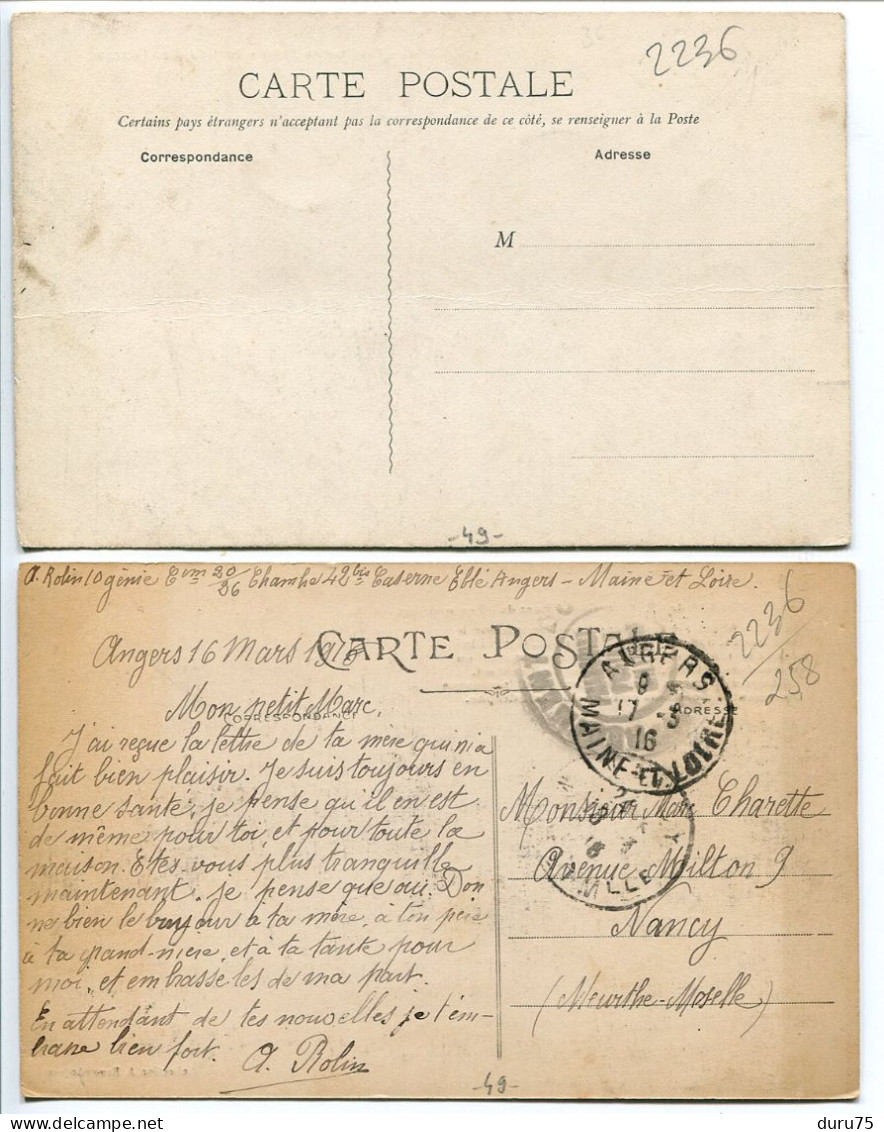 2236
CARTE POSTALE
Certains pays étrangers n'acceptant pas la correspondance de ce côté, se renseigner à la Poste
Correspondance
Adresse
M
-49-
A. Rolin 10 génie Cem 20/36 Chambre 42bis Caserne Eblé Angers - Maine et Loire.
2236
258
Angers 16 Mars 1916
CARTE POSTALE
CORRESPONDANCE
ADRESSE
ANGERS
17 -3
16
MAINE-ET-LOIRE
Mon petit Marc,
J'ai reçue la lettre de ta mère qui m'a
fait bien plaisir. Je suis toujours en
bonne santé, je pense qu'il en est
de même pour toi, et pour toute la
maison. Etes vous plus tranquille
maintenant. je pense que oui. Don
nes bien le bonjour à ta mère, à ton père
à ta grand-mère, et à ta tante pour
moi, et embrasse les de ma part.
En attendant de tes nouvelles je t'em-
brasse bien fort.
A. Rolin
Monsieur Marc Charette
Avenue Milton 9
Nancy
(Meurthe-Moselle)
-49-
delcampe.net
duru75